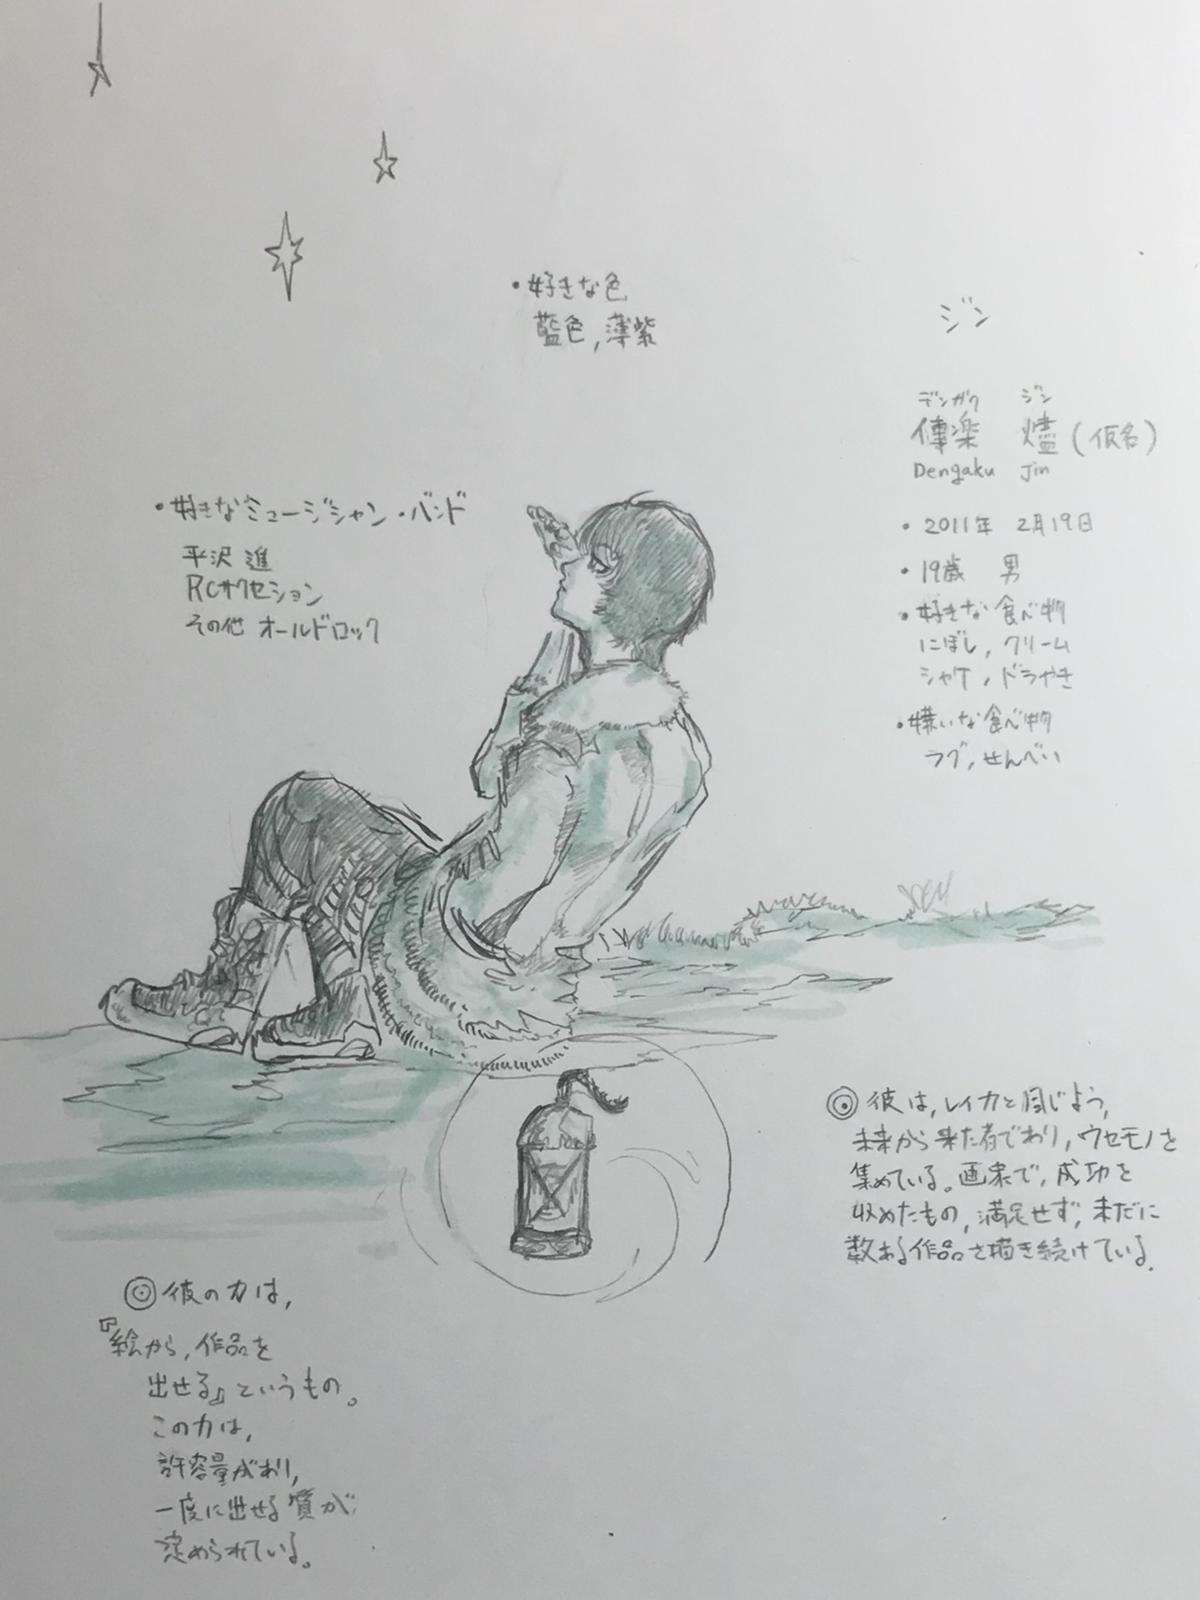 ・好きな色
藍色,薄紫
ジン
デンガク ジン
傳楽 燼(仮名)
Dengaku Jin
・2011年 2月19日
・19歳 男
・好きな食べ物
にぼし,クリーム
シャケ,ドラやき
・嫌いな食べ物
ラグ,せんべい
・好きなミュージシャン・バンド
平沢 進
RCサクセション
その他 オールドロック
◎彼は,レイカと同じよう,
未来から来た者であり,ウセモノを
集めている。画家で,成功を
収めたもの,満足せず,未だに
数ある作品を描き続けている.
◎彼の力は,
『絵から,作品を
出せる』というもの。
この力は,
許容量があり,
一度に出せる質が
定められている。